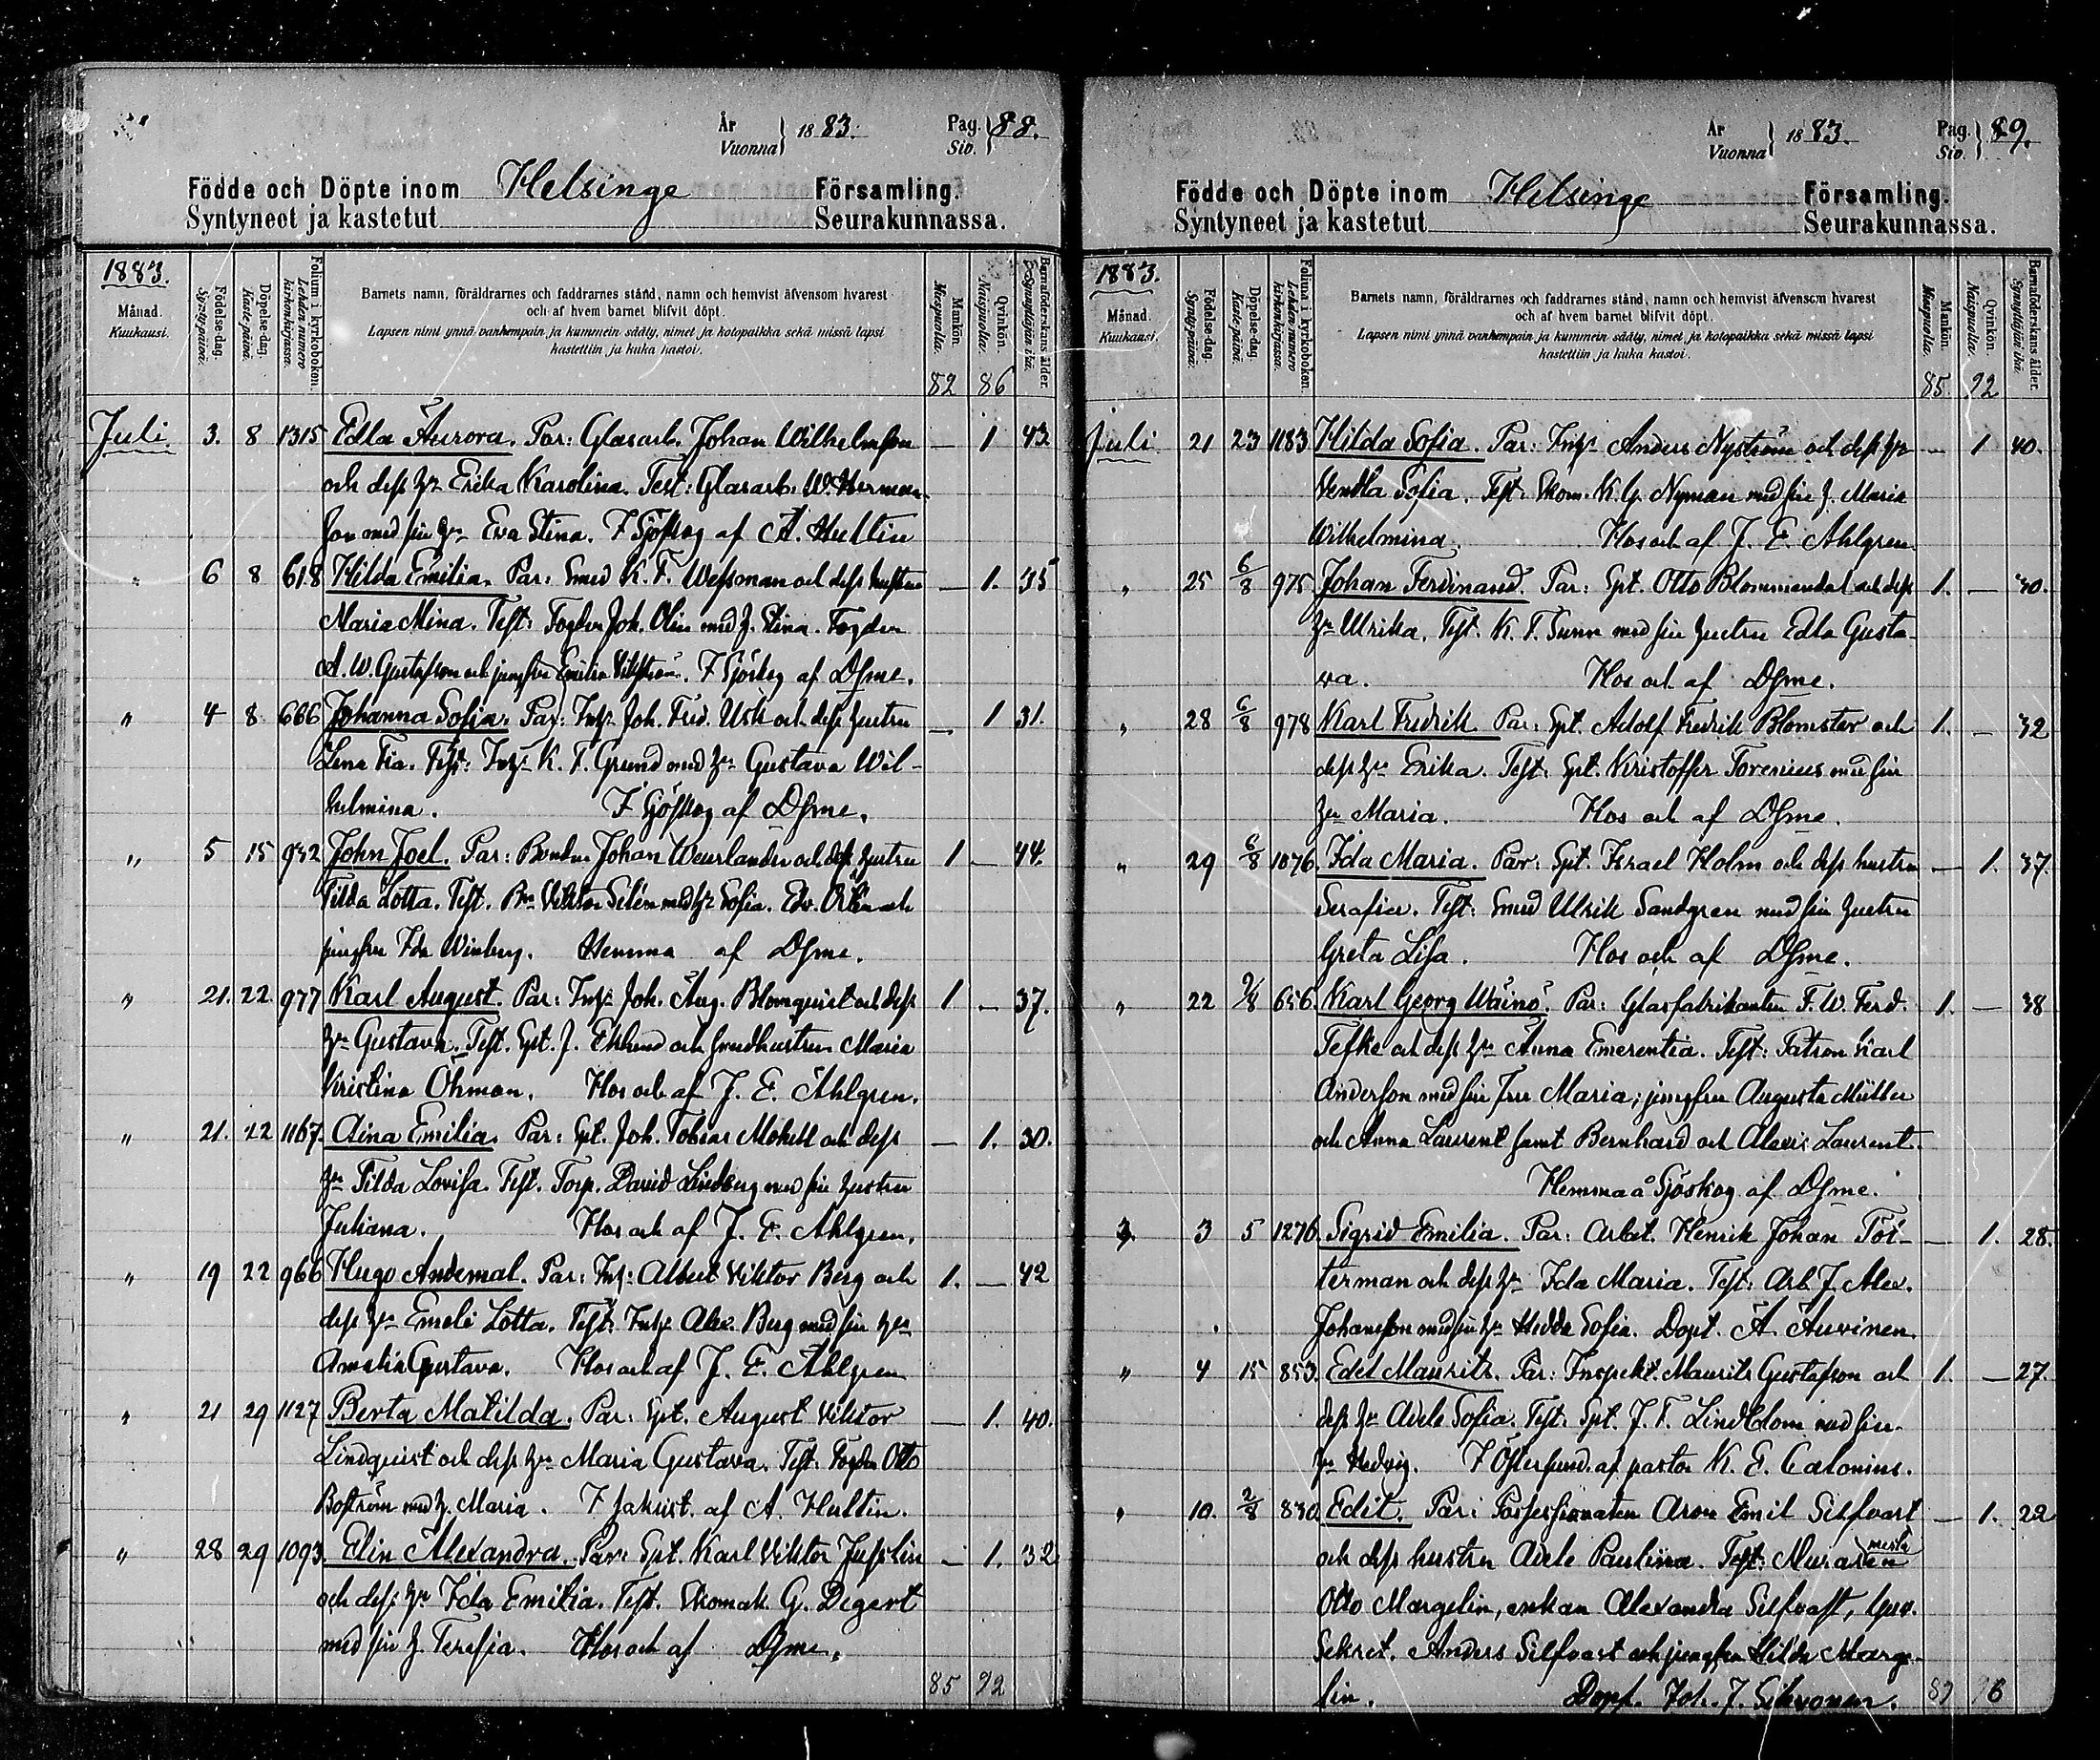 År
Vuonna
1883.
Pag.
Siv.
88.
Födde och Döpte inom Helsinge Församling.
Syntyneet ja kastetut Seurakunnassa.
1883.
Månad.
Kuukausi.
Födelse-dag.
Synty-päivä.
Döpelse-dag.
Kaste-päivä.
Folium i kyrkoboken.
Lehden numero kirkonkirjassa.
Barnets namn, föräldrarnes och faddrarnes stånd, namn och hemvist äfvensom hvarest
och af hvem barnet blifvit döpt.
Lapsen nimi ynnä vanhempain ja kummein sääty, nimet ja kotopaikka sekä missä lapsi
kastettiin ja kuka kastoi.
Mankön.
Miespuolia.
Qvinkön.
Naispuolia.
Barnaföderskans ålder.
Synnyttäjän ikä.
82 86
Juli. 3. 8 1315 Edla Aurora. Par: Glasarb. Johan Wilhelmsson — 1 43
och dess hu Erika Karolina. Test: Glasarb. W. Herman-
son med sin hu Eva Stina. I Sjöskog af A. Hultin
" 6 8 618 Hilda Emilia. Par: Smed K. F. Wessman och dess hustru — 1. 35
Maria Mina. Test: Fogden Joh. Olin med h. Stina. Fogden
A. W. Gustafsson och jungfru Emilia Vikström. I Sjöskog af Dsme.
" 4 8 666 Johanna Sofia. Par: Inhs Joh. Fred. Usk och dess hustru — 1 31.
Lena Fia. Test: Inhs K. F. Grund med hu Gustava Wil-
helmina. I Sjöskog af Dsme.
" 5 15 932 John Joel. Par: Bonden Johan Weurlander och dess hustru 1 — 44.
Tilda Lotta. Test. Bn Viktor Silén med hu Sofia. Edv. och
jungfru Ida Winberg. Hemma af Dsme.
" 21. 22. 977 Karl August. Par: Inhs Joh. Aug. Blomquist och dess 1 — 37.
hu Gustava. Test. Spt. J. Eklund och smedhustrun Maria
Kristina Öhman. Hos och af J. E. Ahlgren.
" 21. 22 1167 Aina Emilia. Par: Spt. Joh. Tobias Mökell och dess — 1. 30.
hu Tilda Lovisa. Test. Torp. David Lindberg med sin hustru
Juliana. Hos och af J. E. Ahlgren.
" 19 22 966 Hugo Andemal. Par: Inhs Albert Viktor Berg och 1. — 42
dess hu Emeli Lotta. Test: Inhs Alex. Berg med sin hu
Amalia Gustava. Hos och af J. E. Ahlgren
" 21 29 1127 Berta Matilda. Par: Spt. August Viktor — 1. 40.
Lindquist och dess hu Maria Gustava. Test: Fogden Otto
Boström med h. Maria. I sakrist. af A. Hultin.
" 28 29 1093 Elin Alexandra. Par: Spt. Karl Viktor Jusslin — 1. 32
och dess hu Ida Emilia. Test. Skomak. G. Degert
med sin h Teresia. Hos och af Dsme.
85 92
År
Vuonna
1883.
Pag.
Siv.
89.
Födde och Döpte inom Helsinge Församling.
Syntyneet ja kastetut Seurakunnassa.
1883.
Månad.
Kuukausi.
Födelse-dag.
Synty-päivä.
Döpelse-dag.
Kaste-päivä.
Folium i kyrkoboken.
Lehden numero kirkonkirjassa.
Barnets namn, föräldrarnes och faddrarnes stånd, namn och hemvist äfvensom hvarest
och af hvem barnet blifvit döpt.
Lapsen nimi ynnä vanhempain ja kummein sääty, nimet ja kotopaikka sekä missä lapsi
kastettiin ja kuka kastoi.
Mankön.
Miespuolia.
Qvinkön.
Naispuolia.
Barnaföderskans ålder.
Synnyttäjän ikä.
85. 92
Juli 21 23 1183 Hilda Sofia. Par: Inhs Anders Nyström och dess hu — 1 40.
Vendla Sofia. Test: Skom. K. G. Nyman med sin h. Maria
Wilhelmina. Hos och af J. E. Ahlgren.
" 25 6/8 975 Johan Ferdinand. Par: Spt. Otto Blommendal och dess 1. — 30.
hu Ulrika. Test. K. F. Sunn med sin hustru Edla Gusta-
va. Hos och af Dsme.
" 28 6/8 978 Karl Fredrik. Par: Spt. Adolf Fredrik Blomster och 1. — 32
dess hu Erika. Test: Spt. Kristoffer Torenius med sin
hu Maria. Hos och af Dsme.
" 29 6/8 1076 Ida Maria. Par: Spt. Israel Holm och dess hustru — 1. 37.
Serafia. Test: Smed Ulrik Sandgren med sin hustru
Greta Lisa. Hos och af Dsme.
" 22 9/8 656 Karl Georg Wäinö. Par: Glasfabrikanten F. W. Ferd. 1. — 38
Tefke och dess hu Anna Emerentia. Test: Patron Karl
Anderson med sin fru Maria; jungfru Augusta Mütter
och Anna Laurent samt Bernhard och Alexis Laurent.
Hemma å Sjöskog af Dsme.
3 5 1276 Sigrid Emilia. Par: Arbet. Henrik Johan Töt- — 1. 28.
terman och dess hu Ida Maria. Test: Arb. J. Alex.
Johansson med sin hu Hedda Sofia. Döpt. A. Auvinen.
" 4 15 853 Edel Maurits. Par: Inspekt. Maurits Gustafsson och 1. — 27.
dess hu Adele Sofia. Test: Spt. J. F. Lindblom med sin
hu Hedvig. I Östersund. af pastor K. E. Calonius.
" 10. 2/8 830 Edit. Par: Possessionaten Aron Emil Silfvast — 1. 22
och dess hustru Adele Paulina. Test: Muraremest.
Otto Margelin, enkan Alexandra Silfvast, Guv.
Sekret. Anders Silfvast och jungfru Hilda Marge-
lin. Döpt. Joh. F. Sihvonen.
89 96